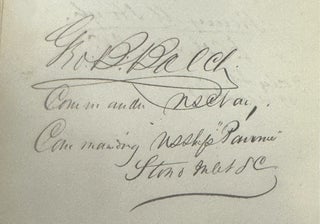 Geo. B. Balch
Commander U S Navy,
Commanding "U S Ship" Pawnee"
Stono Inlet S C